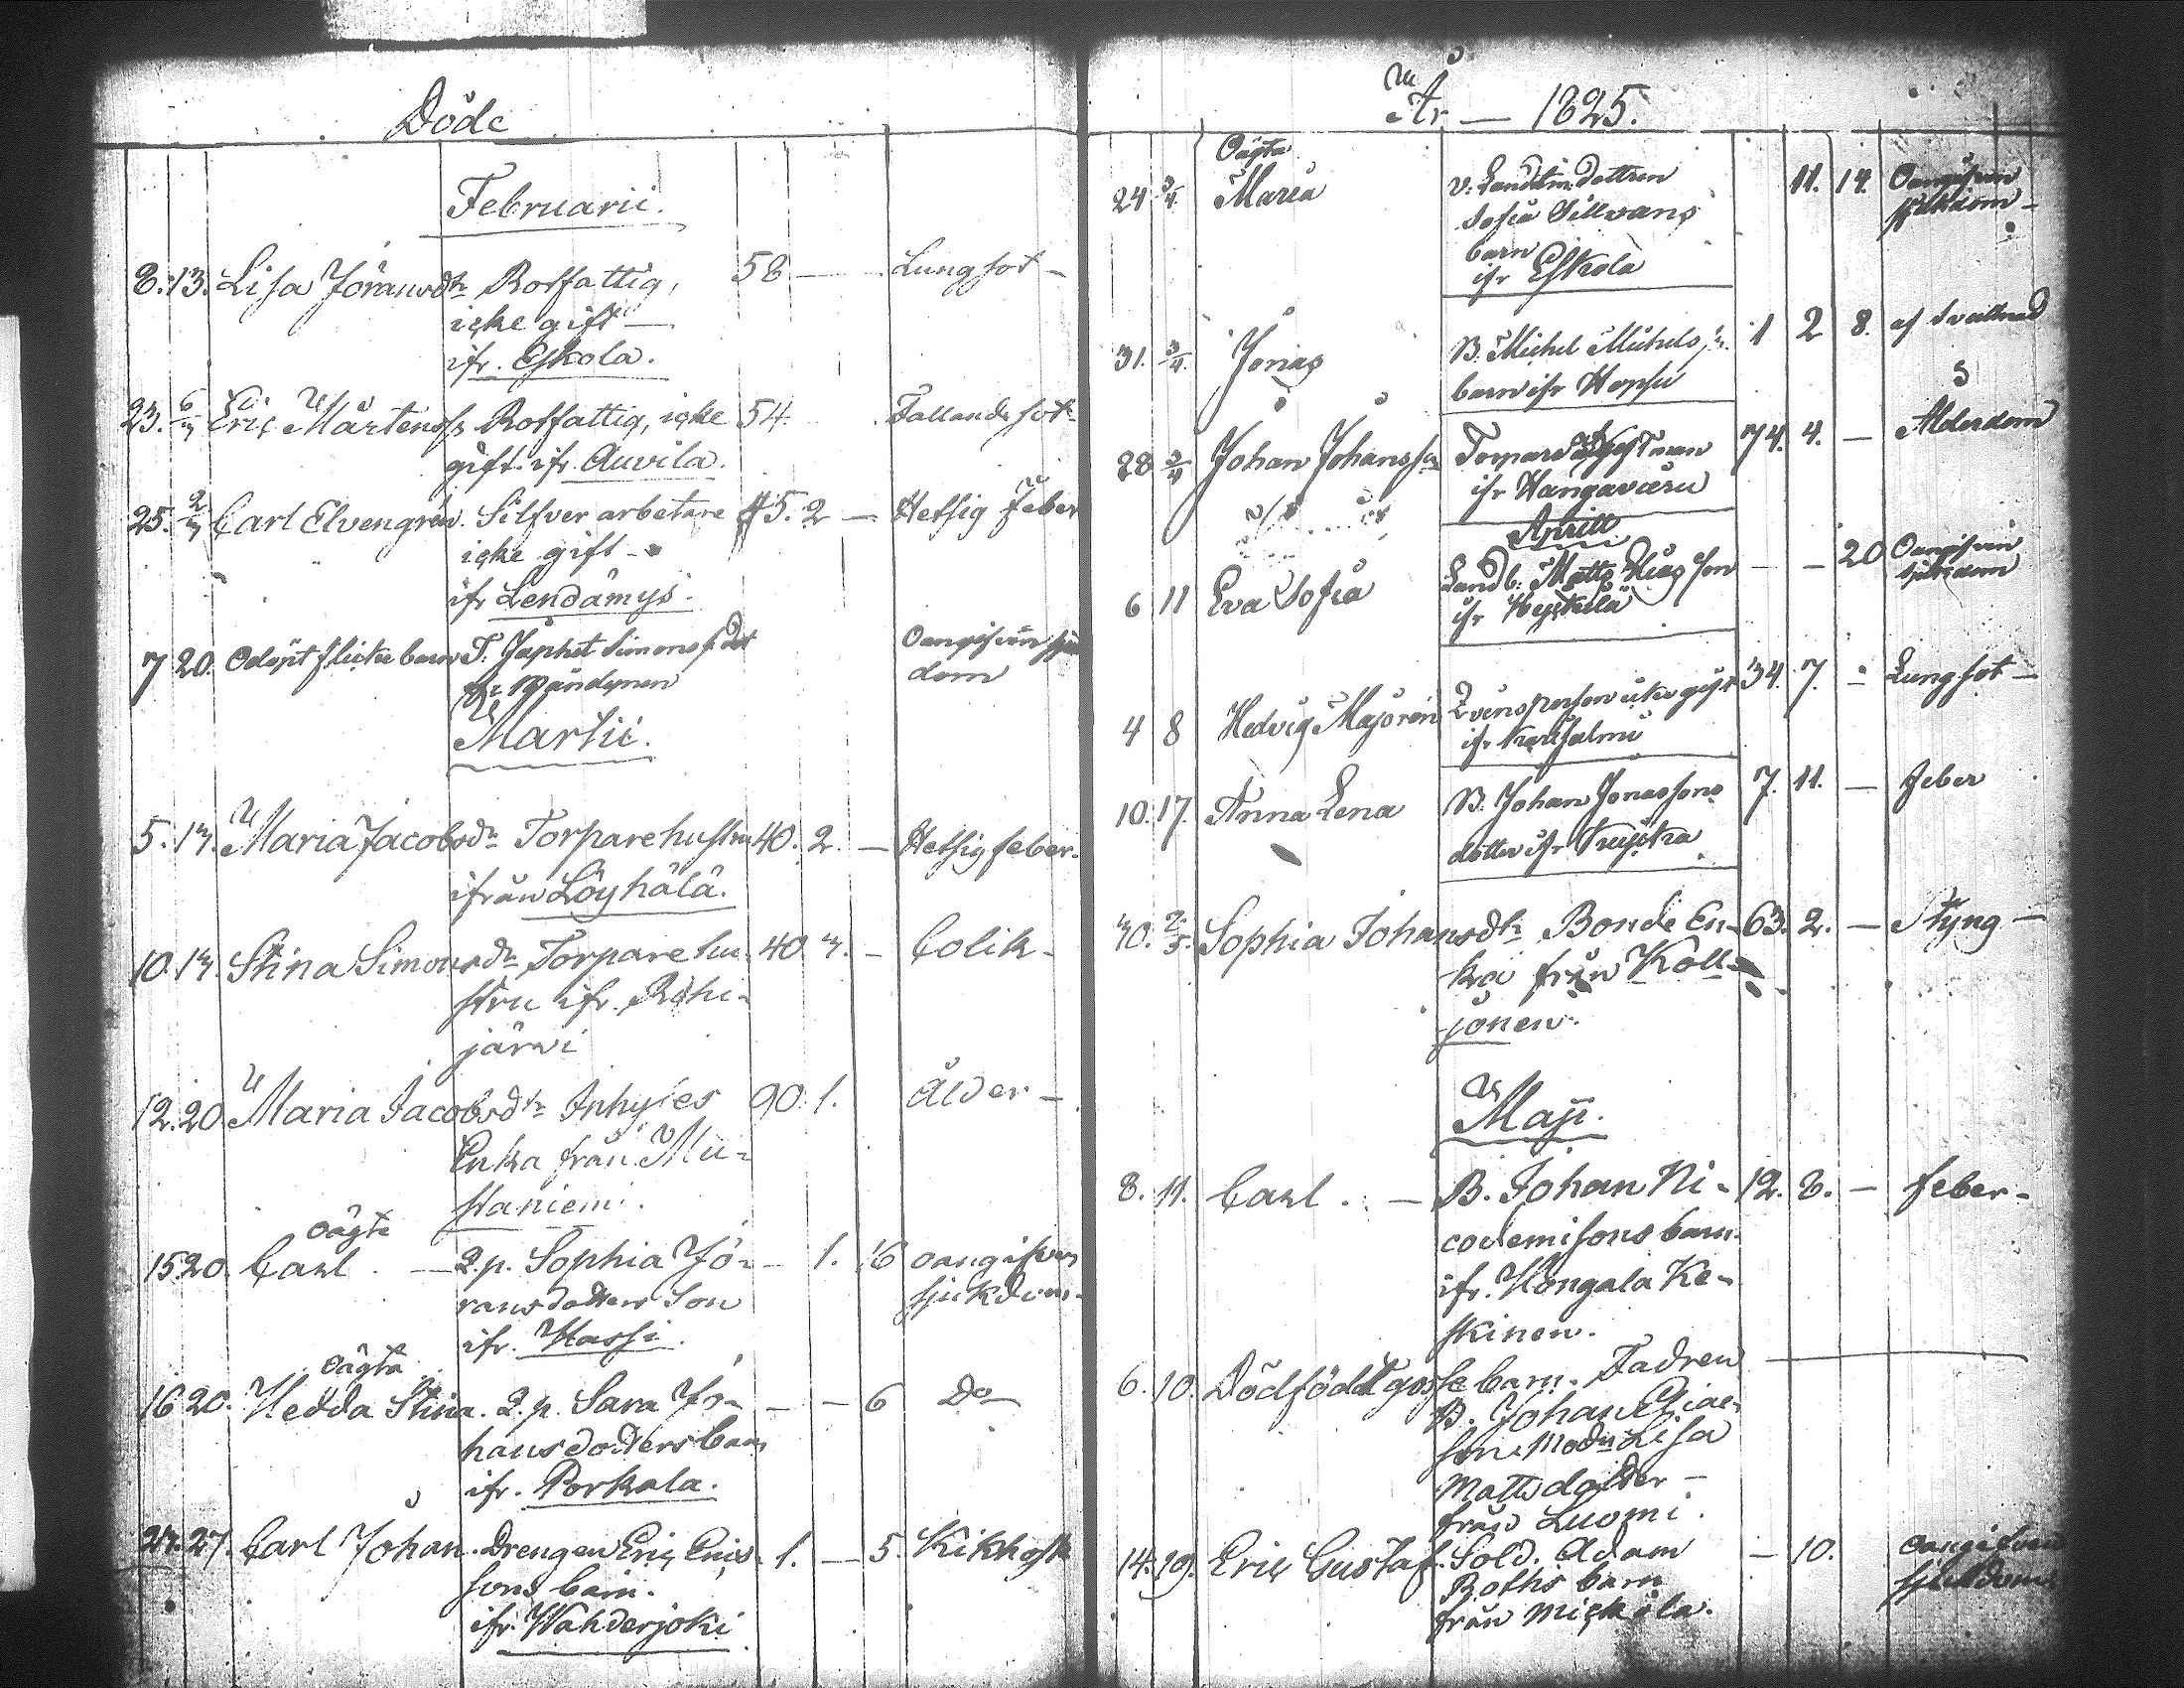 Döde
Februarii.
8. 13. Lisa Jöransdr Rotfattig, 58 — Lungsot —
icke gift —
ifr. Eskola.
23. 6/3 Eric Mårtenss. Rotfattig, icke 54. Fallandesot
gift. ifr. Auvila.
25. 2/3 Carl Elvengren. Silfver arbetare 45. 2 — Hetsig feber
icke gift —
ifr Lendämys.
7 20. Odöpt flicke barn T. Japhet Simons s. dot Oangifven sjuk
dom
Martii.
5. 13. Maria Jacobsdr Torparehustru 40. 2. — Hetsig feber.
ifrån Löyhälä.
10. 13. Stina Simonsdr Torpare hu- 40. 3. — Colik —
stru ifr.
järvi
12. 20. Maria Jacobsdr Inhyses 90. 1. Ålder —
Enka från Mu-
staniemi.
Oägta
15 20. Carl. — Q.p. Sophia Jö- — 1. 16 oangifven
ransdotters Son sjukdom.
ifr. Hassi.
oägta
16 20. Hedda Stina. Q.p. Sara Jo- — — 6 Do
hansdotters barn
ifr. Porkala.
23. 27. Carl Johan. Drengen Eric Erics- 1. — 5. Kikhosta
sons barn.
ifr. Wahderjoki
År — 1825.
Oägta
24 3/4. Maria v. Landtm. dottren 11. 14. Oangifven
Sofia Sillmans sjukdom —
barn
ifr Eskola
31. 3/4. Jonas B. Michel Michels sn. 1 2 8. af Svullnad
barn ifr Hopsu
28 3/4 Johan Johansson Torpare 74. 4. — Ålderdom
ifr Hangavaru
Aprill
6 11 Eva Sofia Landb. Matts son — — 20 Oangifven
ifr Heickilä sjukdom
4 8 Hedvig Majoren Qvinsperson icke gift 34. 7. — Lungsot —
ifr
10. 17. Anna Lena B. Johan Jonassons 7. 11. — feber
dotter ifr
30. 2/5. Sophia Johansdr Bonde En- 63. 2. — Styng —
ka från Koll-
jonen.
Maji.
8. 11. Carl. — B. Johan Ni- 12. 8. — feber —
codemisons barn.
ifr. Hongala Ke-
skinen.
6. 10. Dödfödt gosse barn. Fadren —
B. Johan
son. Modr Lisa
Mattsdotter —
från Luomi.
14. 19. Eric Gustaf. Sold. Adam — 10. oangifven
Roths barn sjukdom
från Mickola.